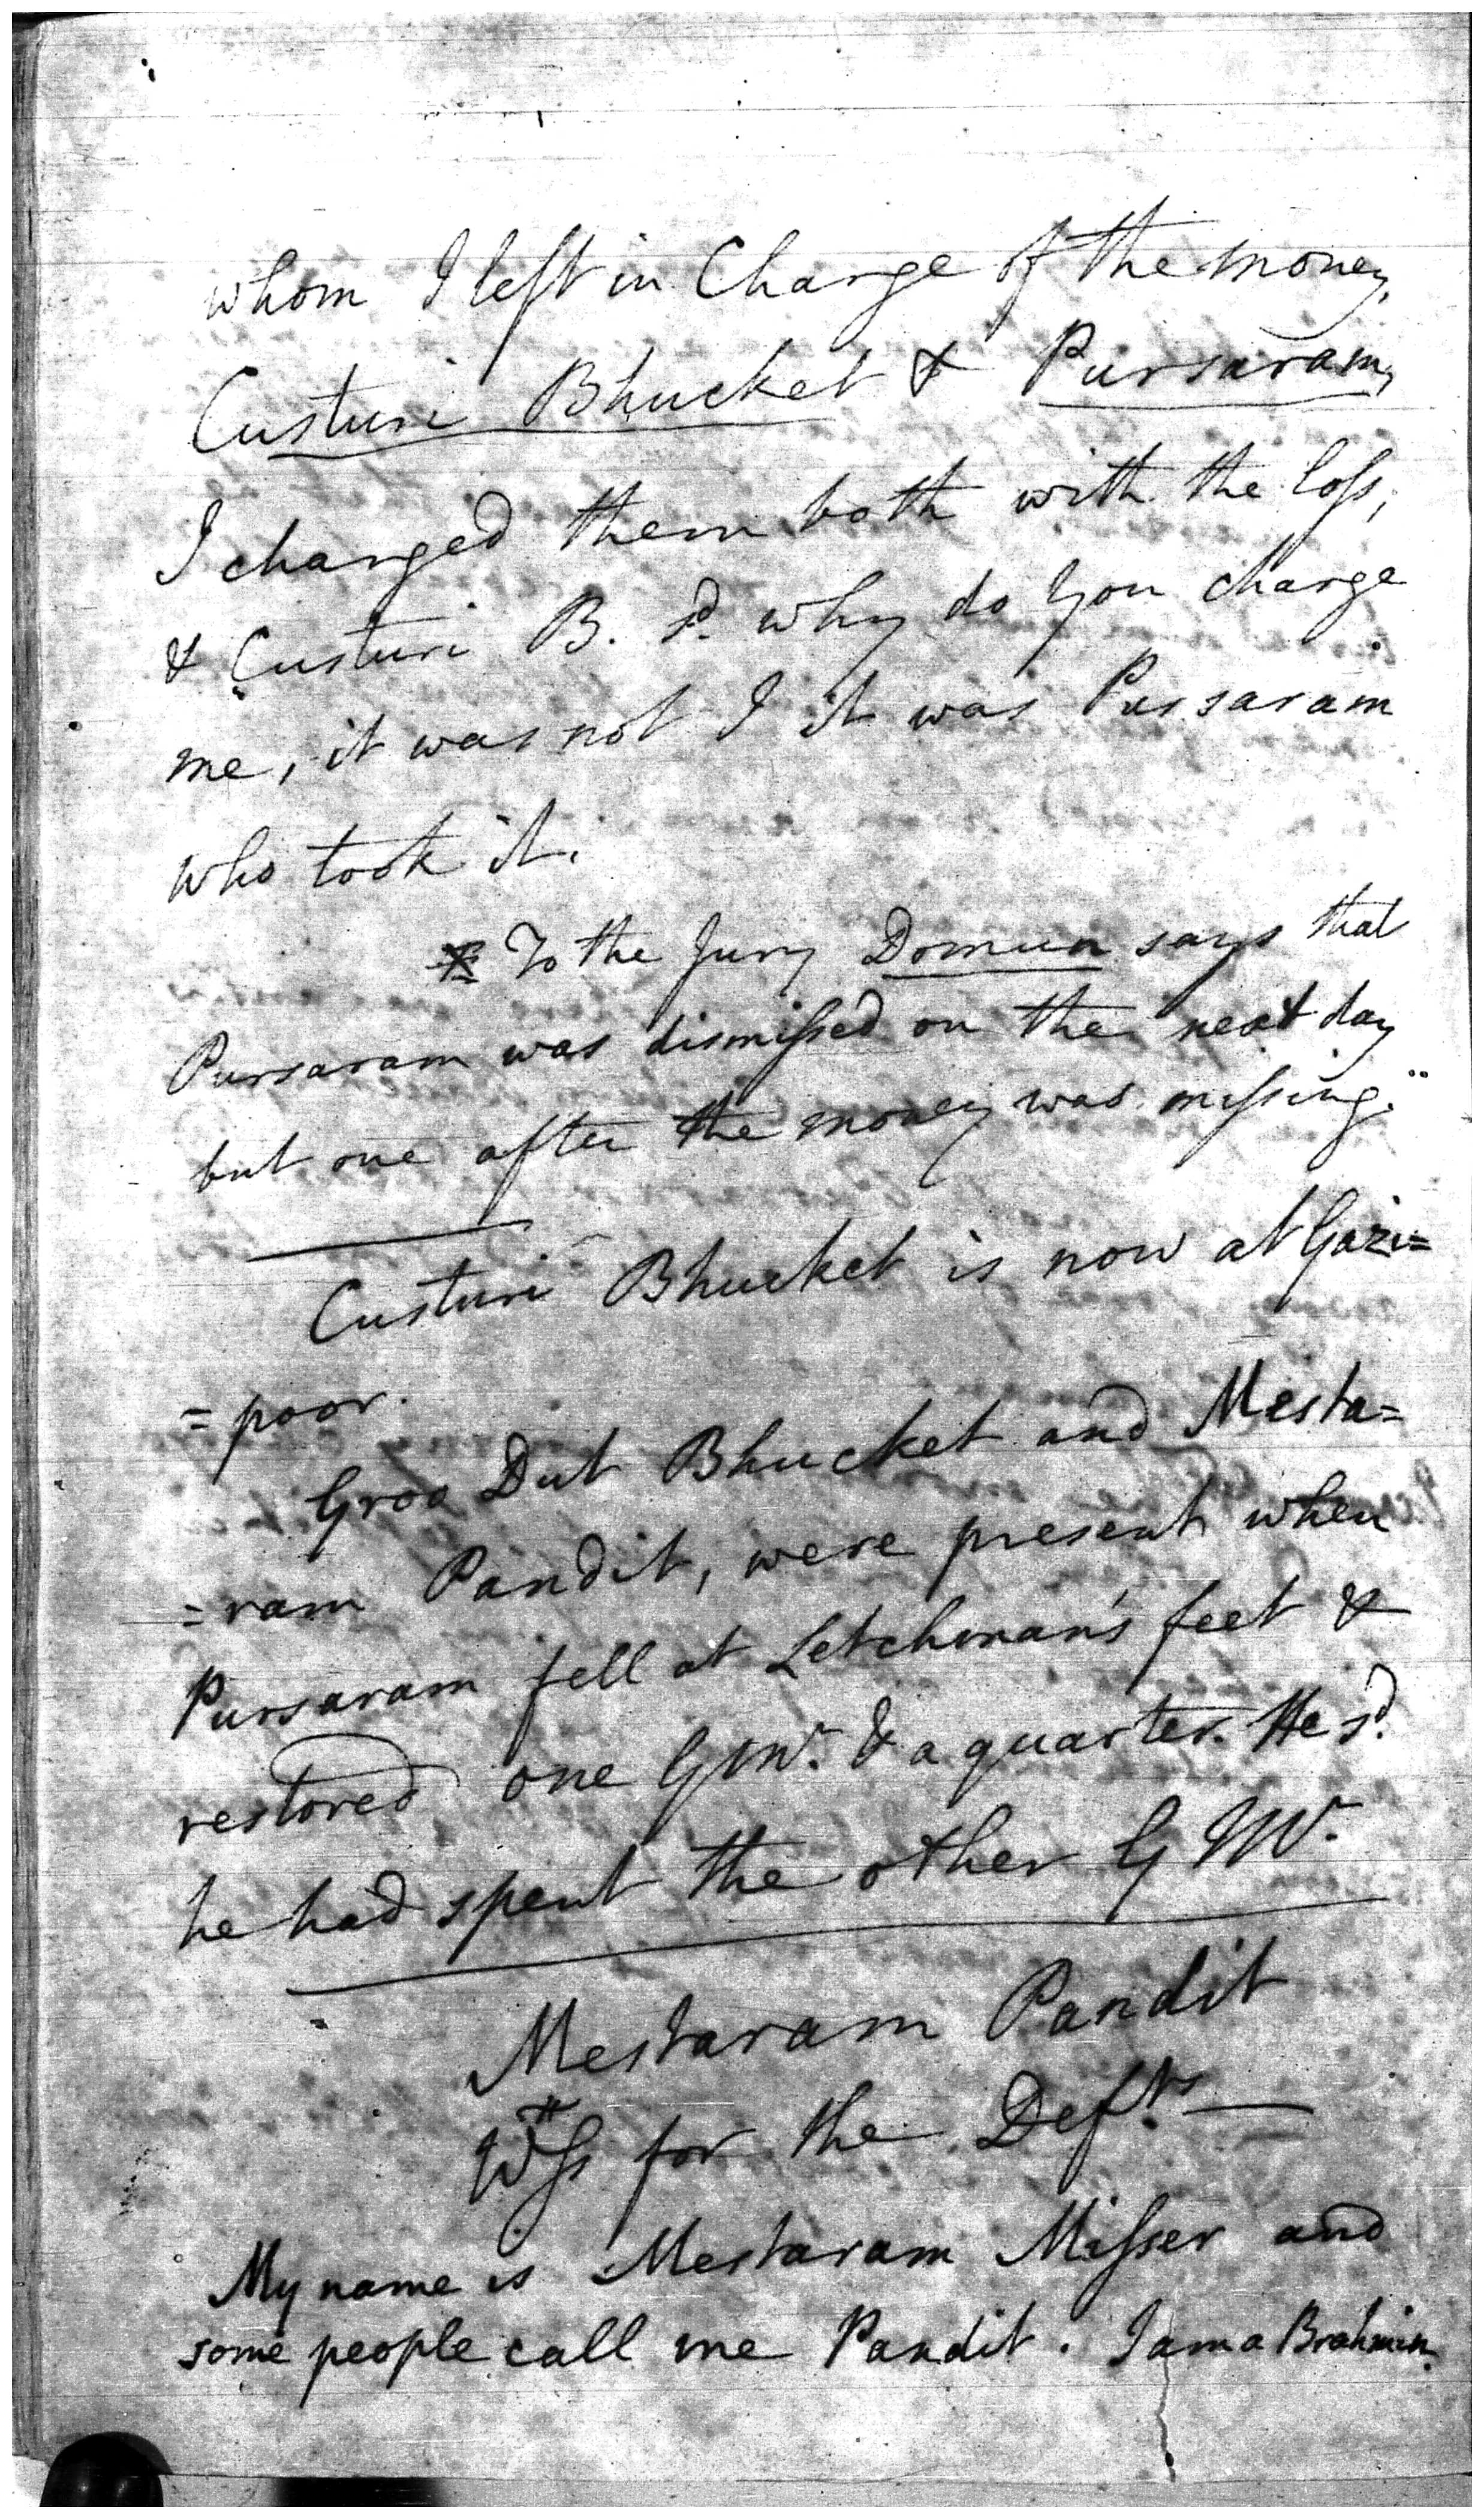 whom I left in Charge of the money,
Custuri Bhucket & Pursaram,
I charged them both with the loss,
& Custuri B. sd. why do you charge
me, it was not I it was Pursaram
who took it.
To the Jury Domun says that
Pursaram was dismissed on the next day
but one after the money was missing.
Custuri Bhucket is now at Gazi=
=poor.
Groo Dut Bhucket and Mesta=
=ram Pandit, were present when
Pursaram fell at Letchman's feet &
restored one GMr. & a quarter. He sd.
he had spent the other GMr.
Mestaram Pandit
Wss for the Defts —
My name is Mestaram Misser and
some people call me Pandit. I am a Brahmin.